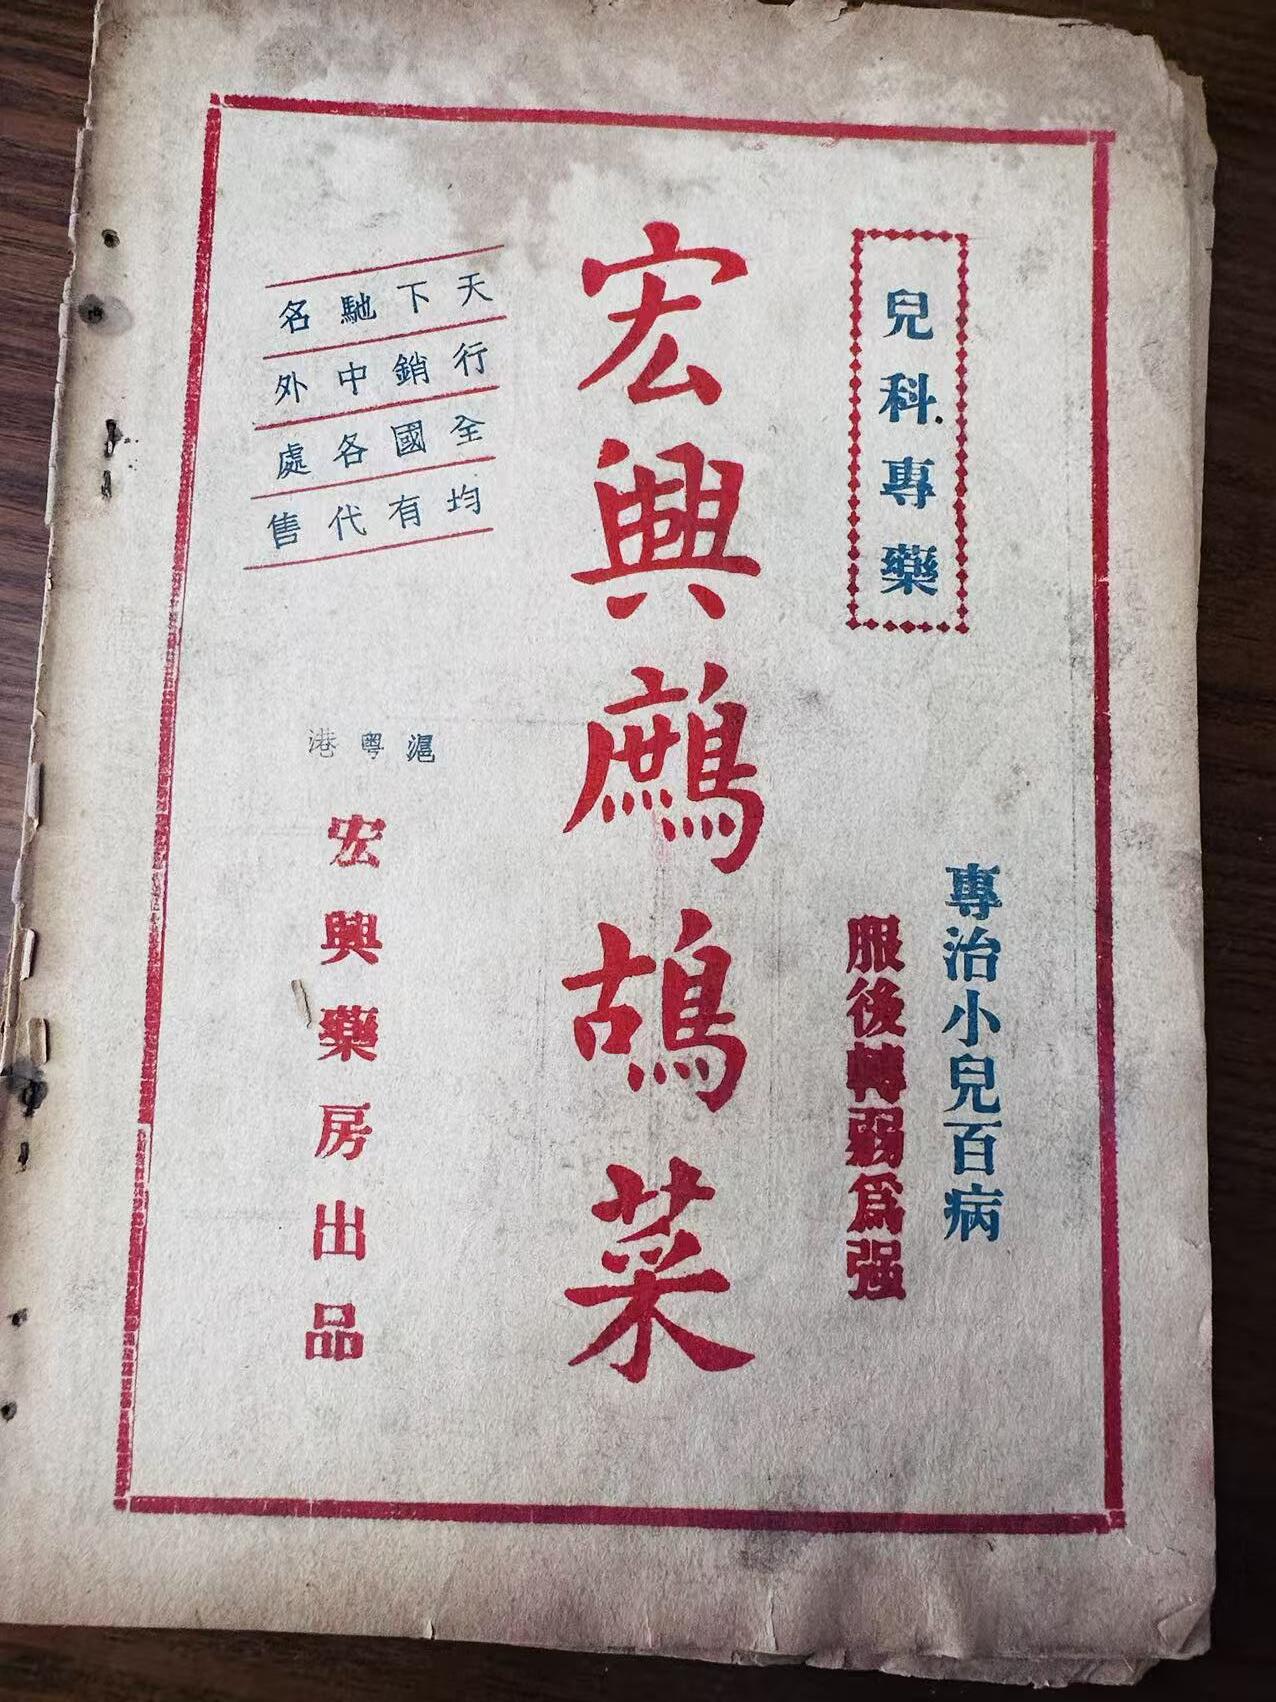 兒科專藥
專治小兒百病
服後轉弱爲强
宏興鷓鴣菜
天下馳名
行銷中外
全國各處
均有代售
滬粤港
宏興藥房出品